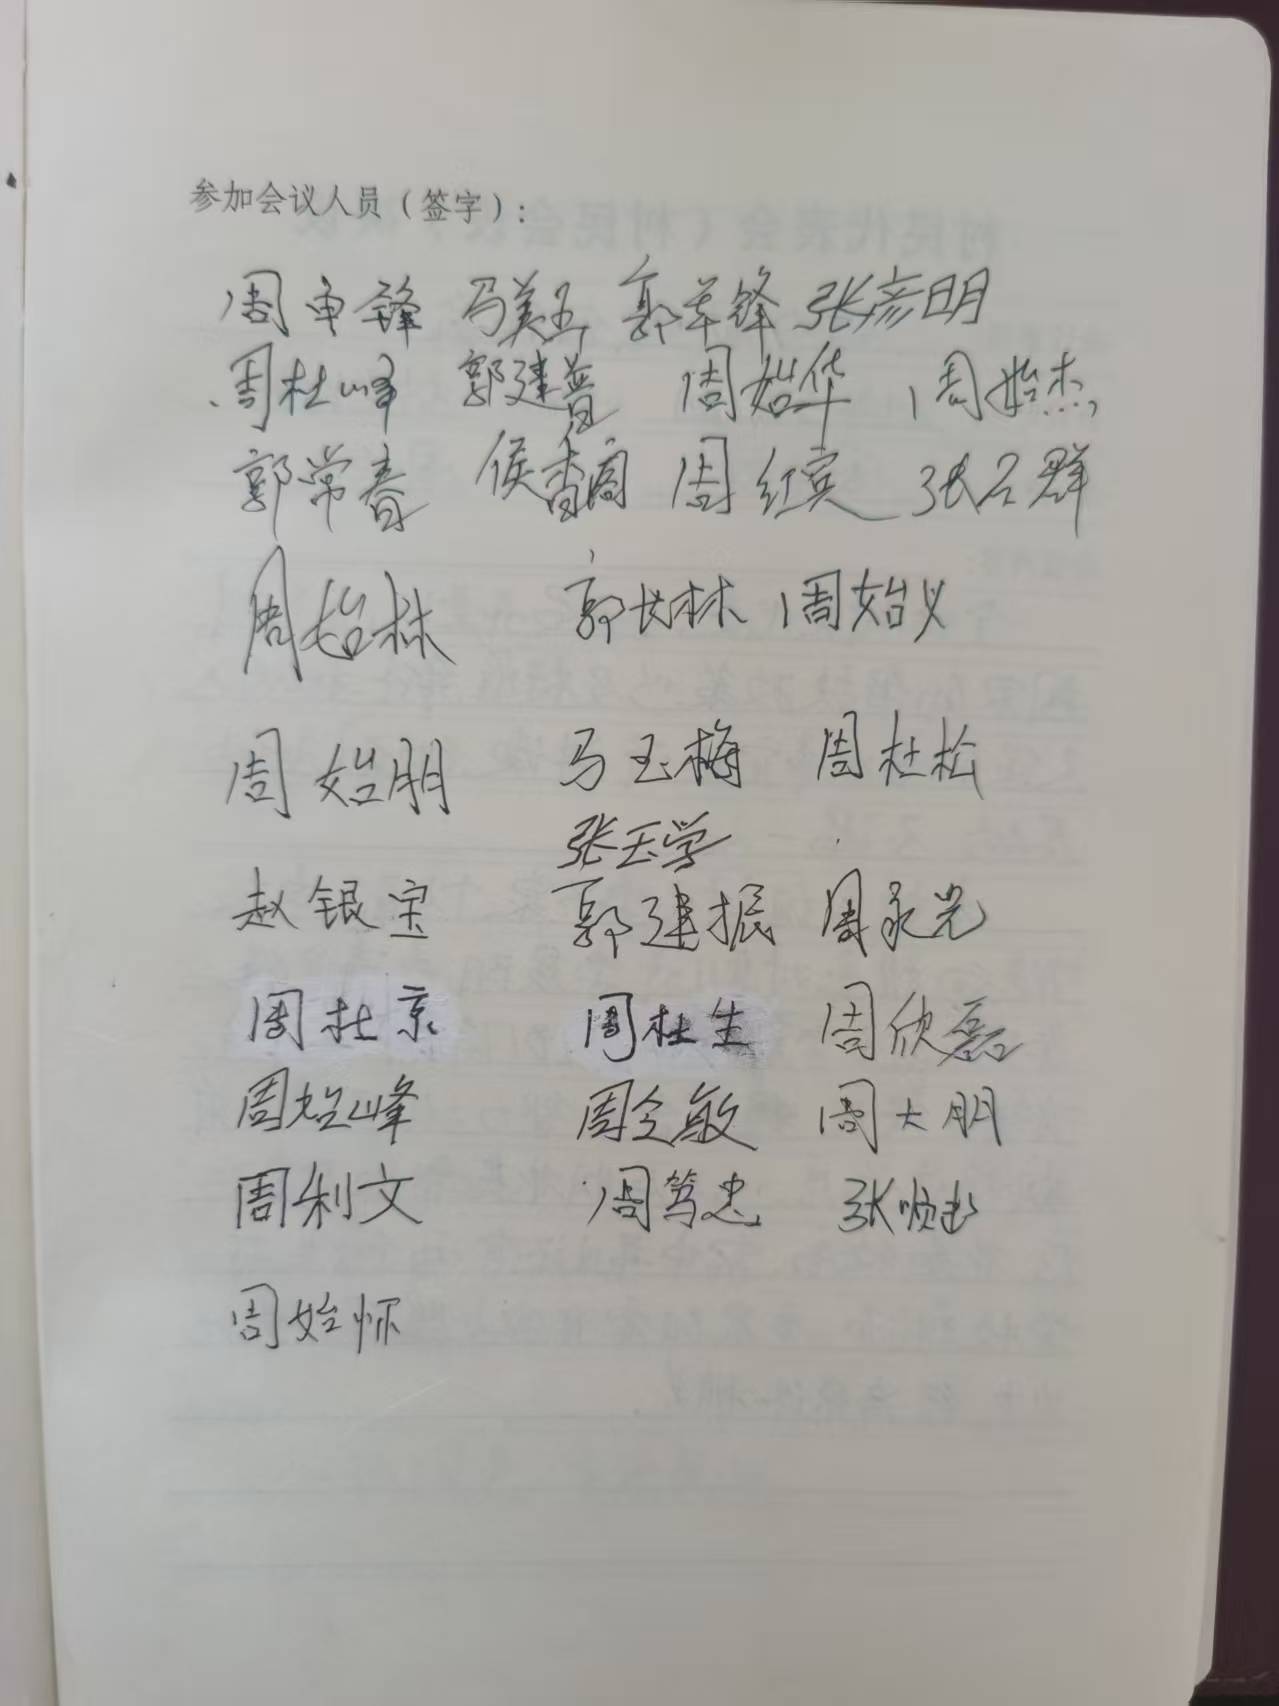 参加会议人员（签字）：
周申锋 马美玉 郭羊锋 张彦明
周杜峰 郭建普 周始华 周始杰
郭常春 侯香阁 周红宾 张召群
周始林 郭长林 周始义
周始朋 马玉梅 周杜松
张玉学
赵银宝 郭建振 周永光
周杜京 周杜生 周欣磊
周始峰 周令敏 周大朋
周利文 周笃忠 张顺
周始怀